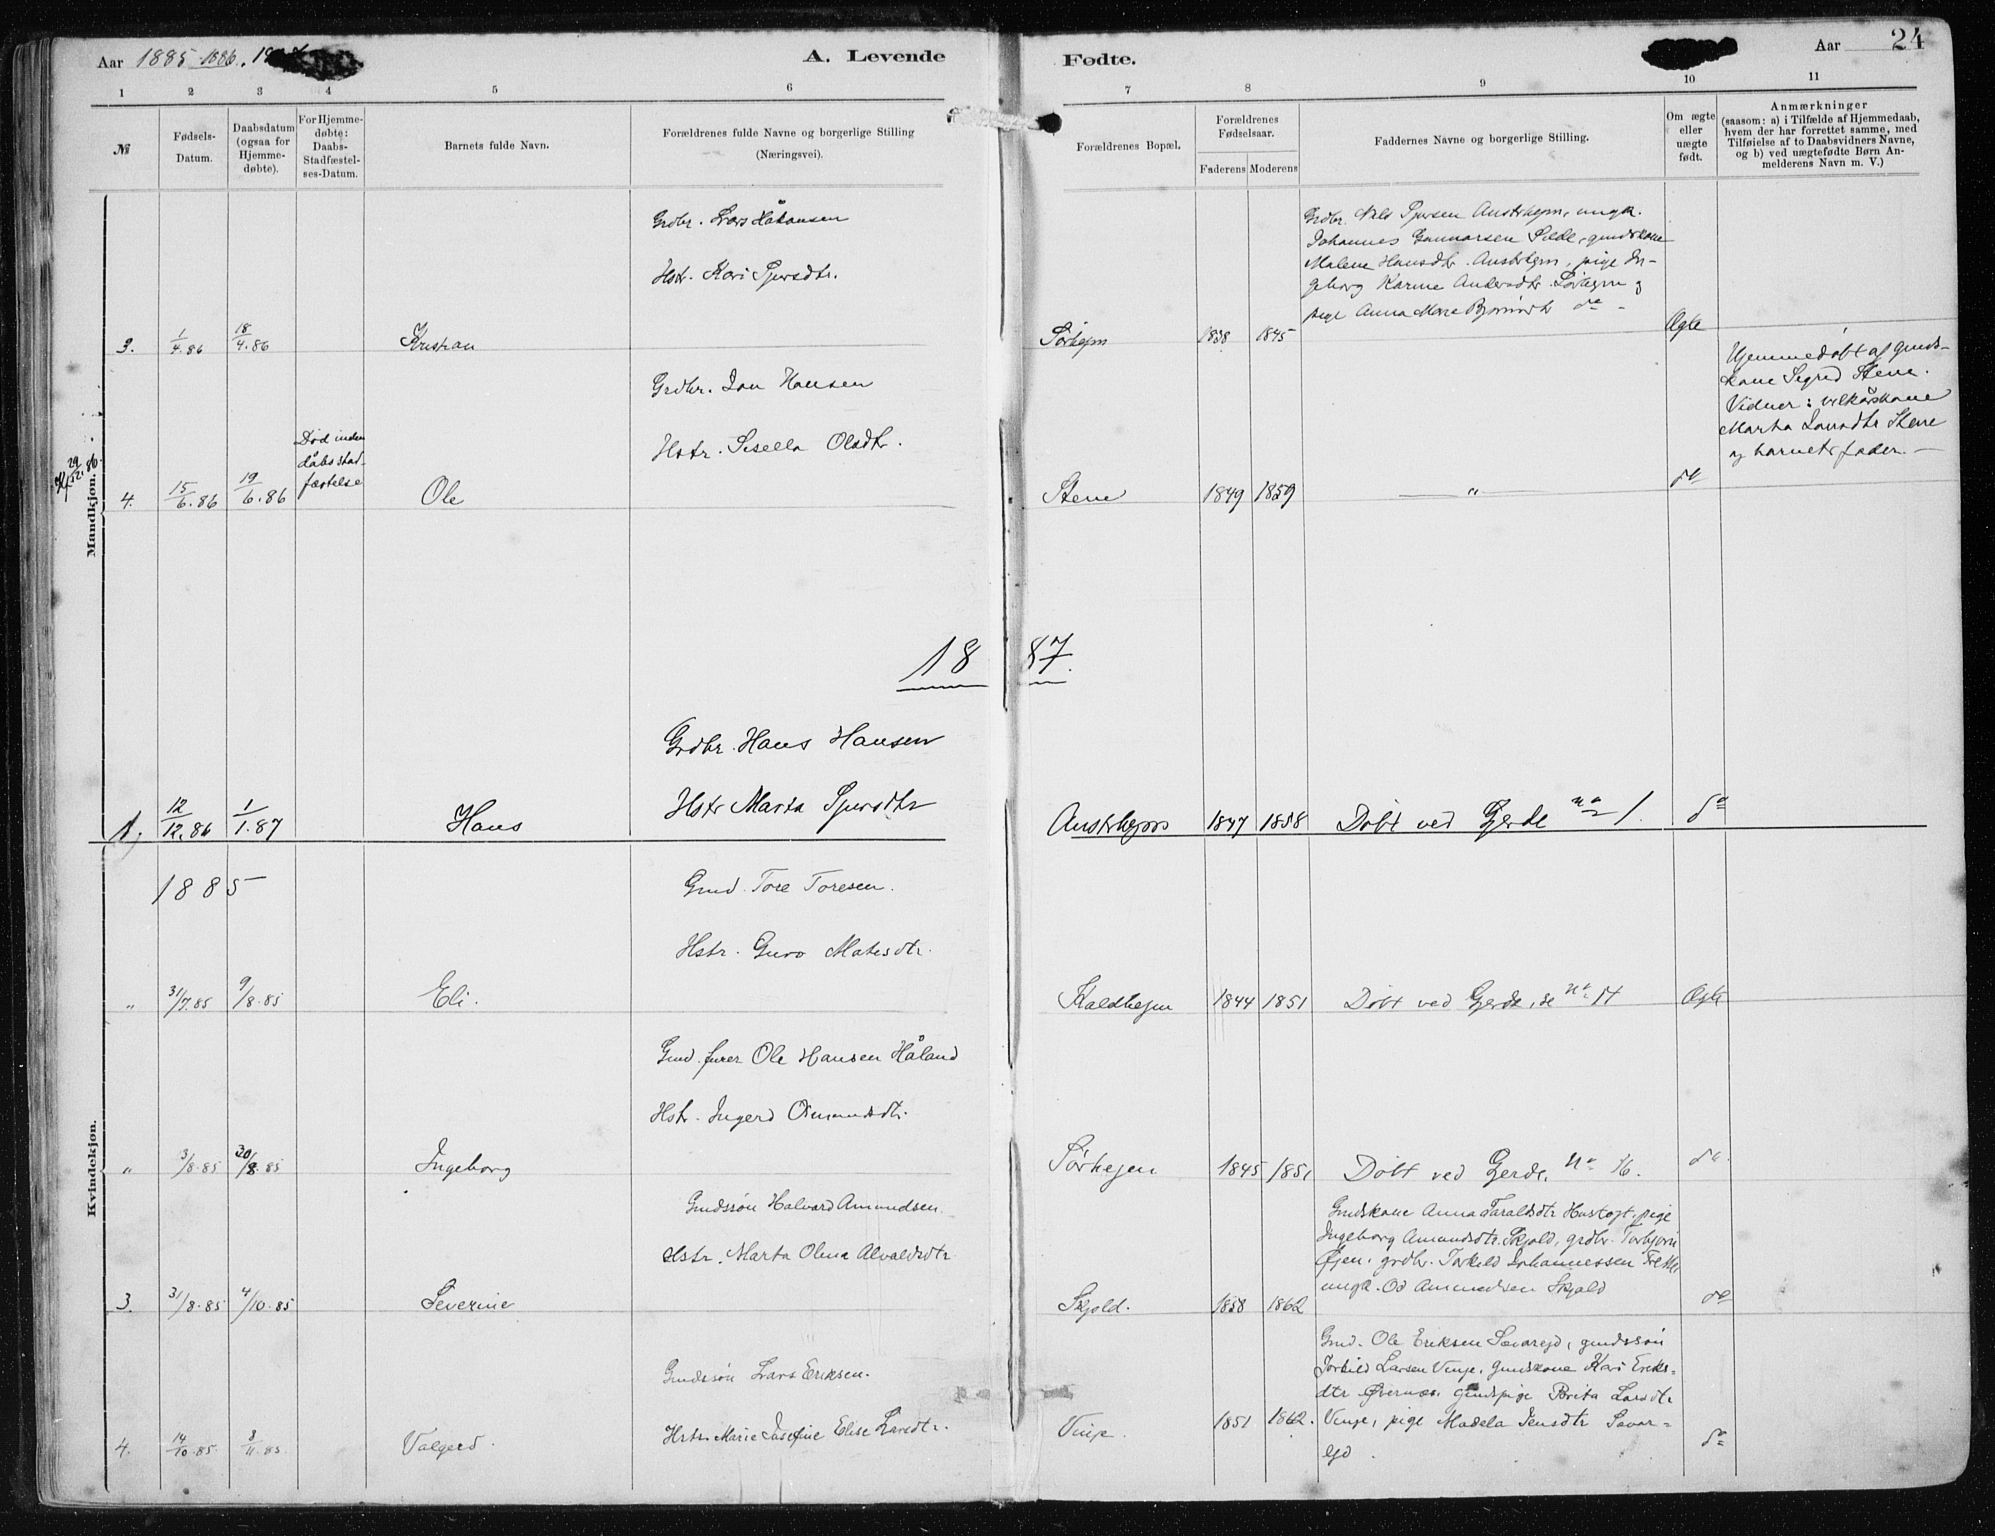 Aar 1885-1886.
A. Levende
Fødte.
Aar
24
1 2 3 4 5 6 7 8 9 10 11
№
Fødsels-
Datum.
Daabsdatum
(ogsaa for
Hjemme-
døbte).
For Hjemme-
døbte:
Daabs-
Stadfæstel-
ses-Datum.
Barnets fulde Navn.
Forældrenes fulde Navne og borgerlige Stilling
(Næringsvei).
Forældrenes Bopæl.
Forældrenes
Fødselsaar.
Faderens Moderens
Faddernes Navne og borgerlige Stilling.
Om ægte
eller
uægte
født.
Anmærkninger
(saasom: a) i Tilfælde af Hjemmedaab,
hvem der har forrettet samme, med
Tilføielse af to Daabsvidners Navne,
og b) ved uægtefødte Børn An-
melderens Navn m. V.)
Mandkjøn.
Grdbr. Lars Håkonsen
Hstr. Kari Sjursdtr.
3.
1/4.86
18/4.86
Kristian
Sørhejm
1838 1845
Grdbr. Nils Sjursen Austrhejm, ungk.
Johannes Gunnarsen Silde, gmdskone
Malene Hansdtr. Austrhejm, pige In-
geborg Karine Andersdtr. Sørhejm og
pige Anna Marie Bjørnsdtr do -
Ægte
Grdbr. Jon Hansen
Hstr. Sisella Olsdtr.
4.
15/6.86
19/6.86
Død inden
dåbsstad-
fæstelse
Ole
Stene
1849 1859
— " —
do
Hjemmedøbt af gmds-
kone Sigrid Stene.
Vidner: vilkårskone
Marta Larsdtr Stene
og barnets fader. —
1887.
Grdbr. Hans Hansen
Hstr Marta Sjursdtr
1.
12/12.86
1/1.87
Hans
Austrhejm
1847 1858
Døbt ved Gjerde no 1.
do
Kvindekjøn.
1885
Gmd. Tore Toresen.
Hstr. Guro Matesdtr.
"
31/7.85
9/8.85
Eli.
Kaldhejm
1844 1851
Døbt ved Gjerde, se no 14
Ægte
Gmd. furer Ole Hansen Håland
Hstr. Ingerd Osmundsdtr.
"
3/8.85
30/8.85
Ingeborg
Sørhejm
1845 1851
Døbt ved Gjerde, no 16.
do.
Gmdssøn Halvard Amundsen.
Hstr. Marta Olena Alvaldsdtr
3.
31/8.85
4/10.85
Severine
Skjold.
1858 1862
Gmdskone Anna Taraldsdtr Hustoft, pige
Ingeborg Amundsdtr. Skjold, grdbr. Torbjørn
Øjen, grdbr. Torkild Johannessen Frette,
ungk. Od Ammundsen Skjold
do
Gmdssøn Lars Eriksen.
Hstr. Marie Josefine Elise Larsdtr.
4.
14/10.85
8/11.85
Valgerd.
Vinje.
1851 1862.
Gmd. Ole Eriksen Sævarejd, gmdssøn
Torkild Larsen Vinje, gmdskone Kari Eriks-
dtr Øvernæs, gmdspige Brita Larsdtr
Vinje, pige Madela Jensdtr Sævar-
ejd.
do